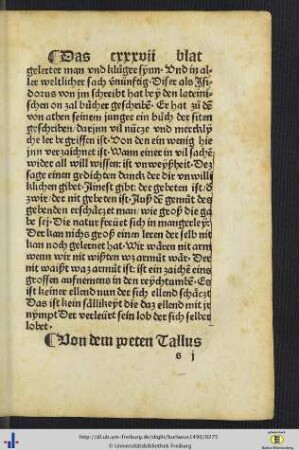 Das cxxxvii blat
gelerter man vnd klůger synn. Vnd in al-
ler weltlicher sach v̄nünftig. Diser als Jsi-
dorus von jm schreibt hat bey den lateini-
schen on zal bůcher geschribē. Er hat zů dē
von athen seinem junger ein bůch der siten
geschriben / darjnn vil nücze vnd mercklÿ-
che ler begriffen ist. Von den ein wenig hie
jnn verzaichnet ist. Wann einer in vil sachē
wider all will wissen: ist vnweyßheit. Des
sage einen gedichten danck der dir vnwilli
klichen gibet. Jinest gibt: der gebeten ist / d̄
zwir / der nit gebeten ist. Auß dē gemüt des
gebenden erschäczet man / wie groß die ga
be sej. Die natur frewet sich in mangerley.
Der kan nichs groß einen leren der selb nit
kan noch gelernet hat. Wir wären nit arm
wenn wir nit wißten wz armůt wär. Der
nit waißt waz armůt ist: ist ein zaichē eins
grossen aufnemens in den reychtumbē. Es
ist keiner ellend nun der sich ellend schäczt
Das ist kein sälikeyt die daz ellend mit jr
nÿmpt Der verleüret sein lob der sich selber
lobet.
Von dem poeten Tallus
s j
http://dl.ub.uni-freiburg.de/diglit/burlaeus1490/0275
© Universitätsbibliothek Freiburg